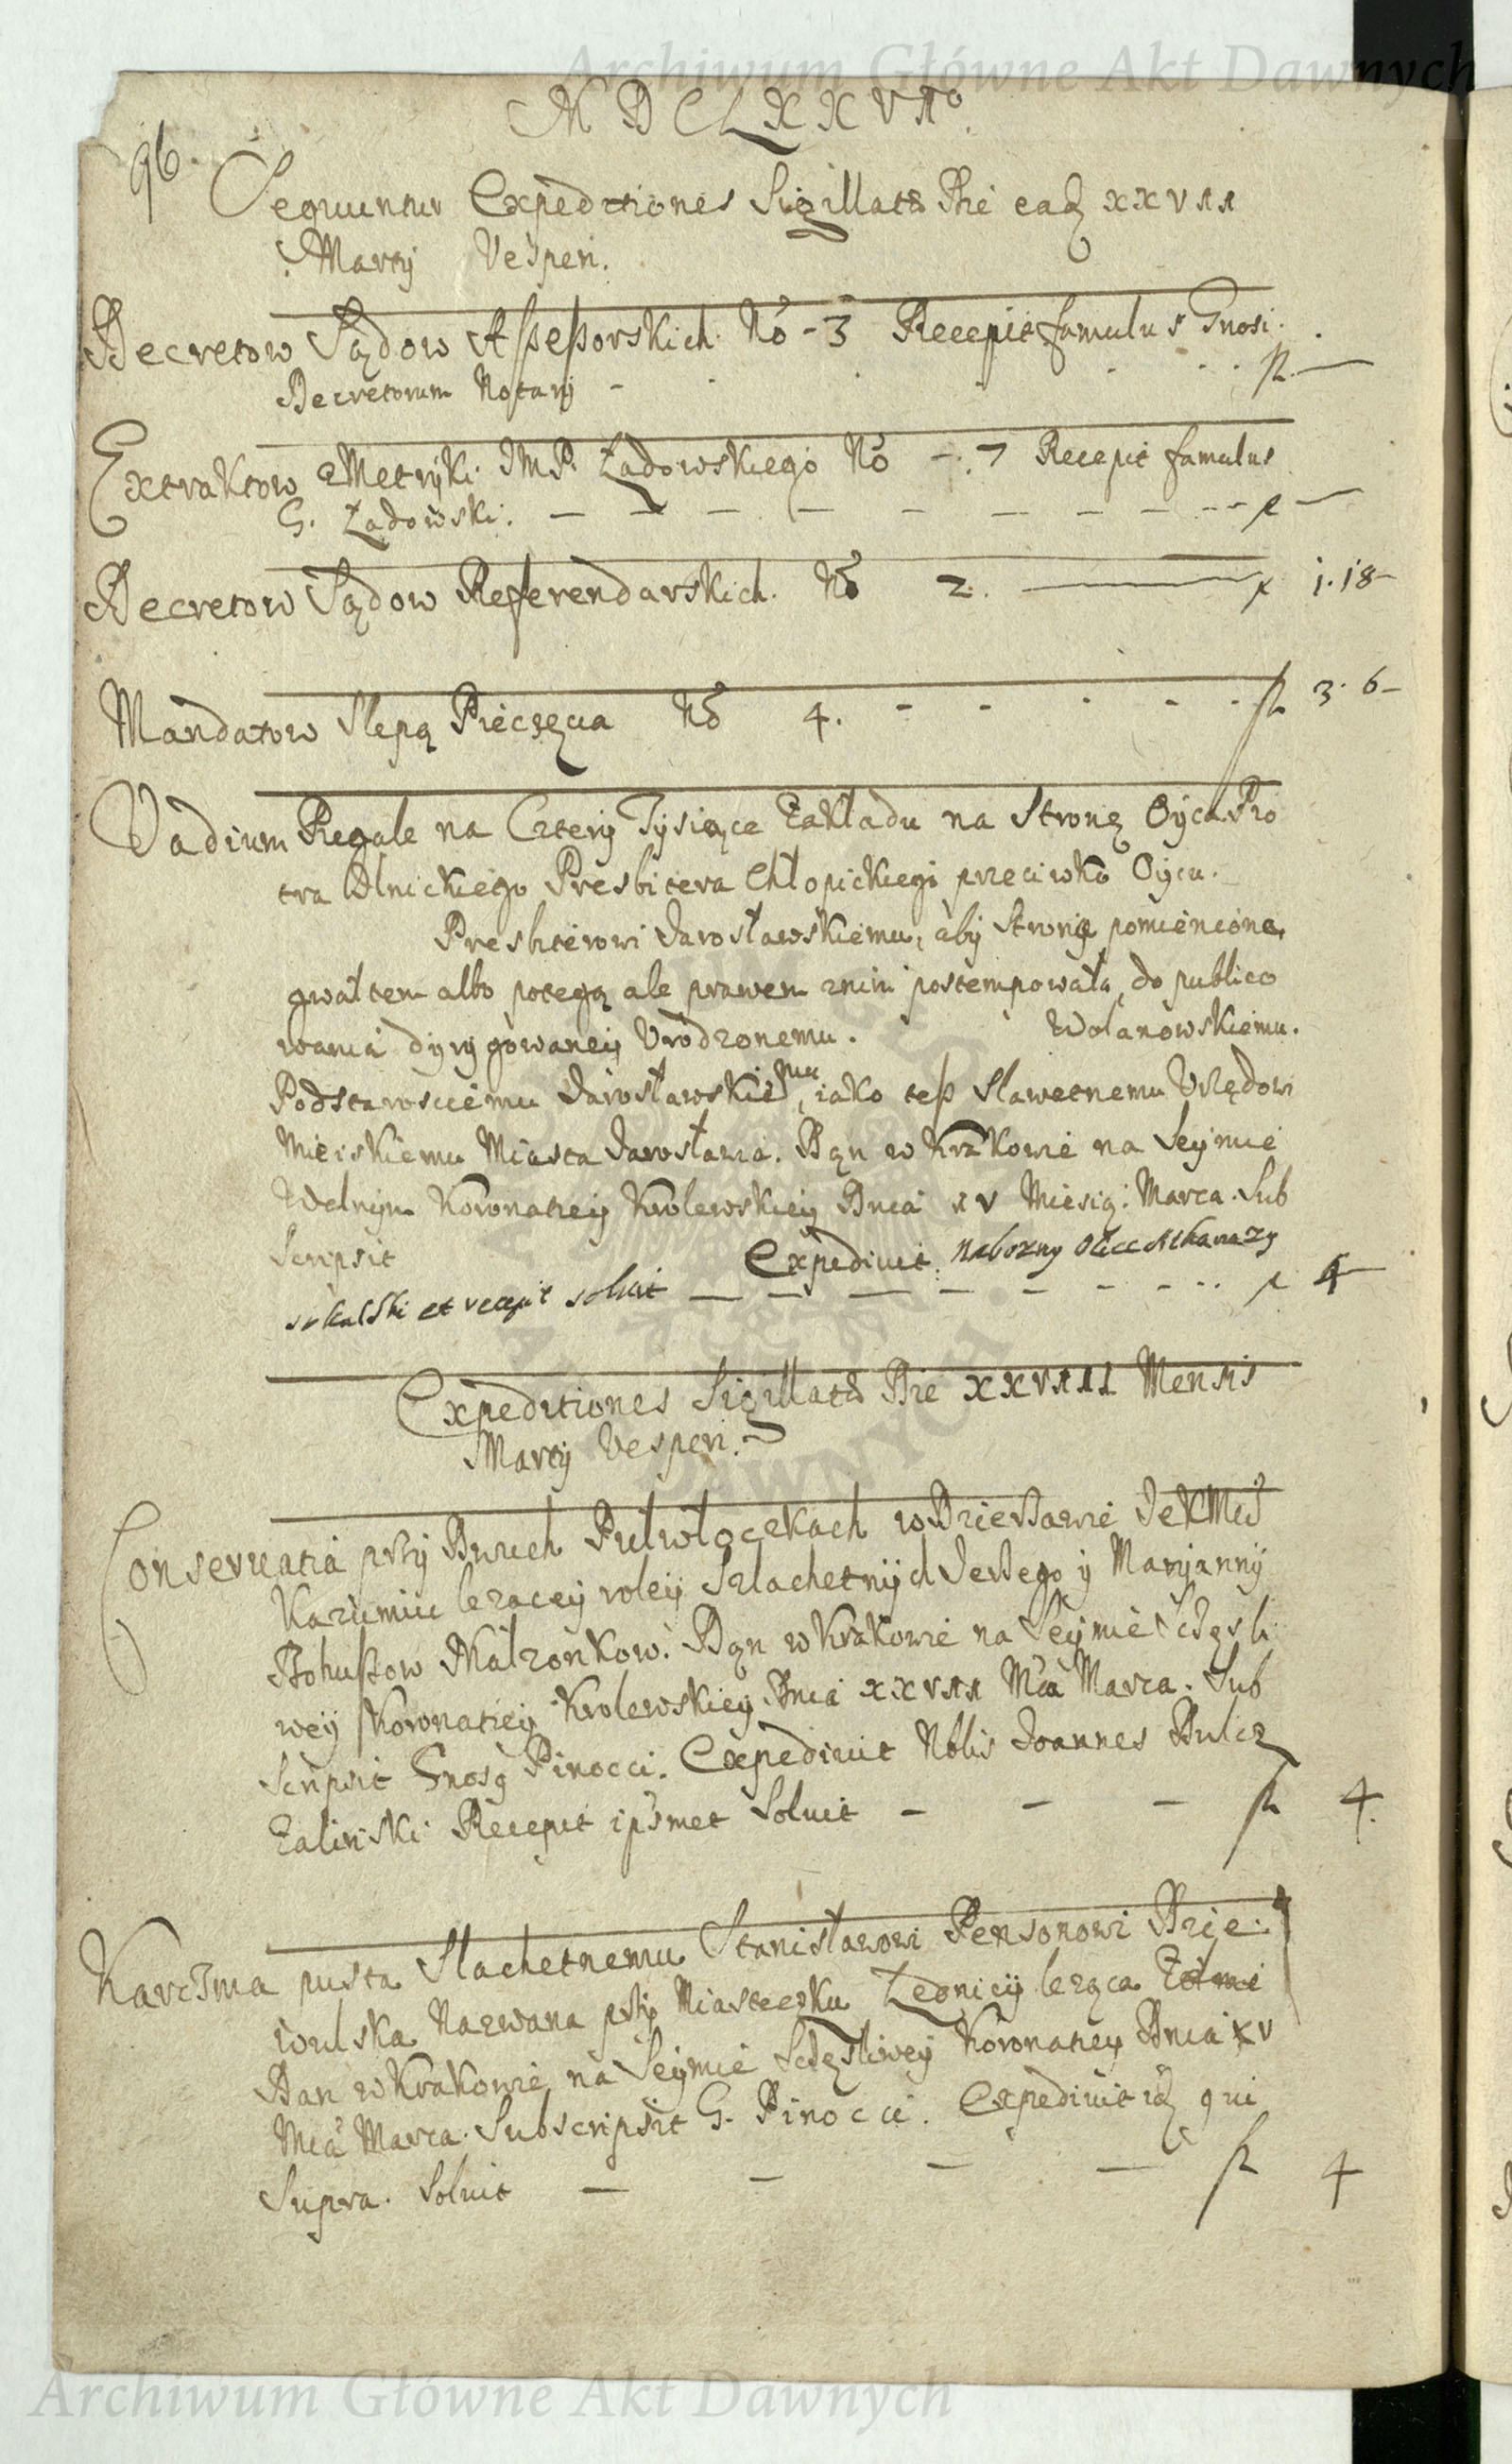 Archiwum Główne Akt Dawnych
MDCLXXVIº
96.
Sequuntur Expeditiones Sigillatæ Die eadꝫ XXVII
Martij Vesperi.
Decretow Sądow Aſseſsorskich Nō - 3 Recepit famulus Gnosi
Decretorum Notarij - fl. —
Extraktow z Metryki JMP. Ządowskiego Nō - 7 Recepit famulus
G. Ządowski. — — — — — — — fl —
Decretow Sądow Referendarskich. Nō 2. — fl 1.18-
Mandatow Slepą Pieczęcią Nō 4. - - - - - fl 3.6-
Vadium Regale na Cztery Tysiące Zakładu na Stronę Oyca Pio
tra Presbitera Chłopickiego przeciwko Oycu.
Presbiterowi Jarosławskiemu, aby Stronę pomienioną
gwałtem albo potegą ale prawem znim postempowała, do publico
wania dyrygowaney Vrodzonemu. Wolanowskiemu.
Podstarosciemu Jarosławskiemu, iako teſz Sławetnemu Vrzędowi
Mieiskiemu Miasta Jarosławia. Dan w Krakowie na Seymie
Walnym Koronatiey Krolewskiey Dnia XV Miesią: Marca. Sub
scripsit Expediuit Nabozny Ociec Athanazy
et recepit soluit — — — — - - fl 4—
Expeditiones Sigillatæ Die XXVIII Mensis
Martij Vesperi.
Conseruatia przy Dwuch Pulwłoczkach w Dzierżawie JeKMci
lezacey roley Szlachetnych Jerzego y Maryanny
Bohuſzow Małzonkow. Dan w Krakowie na Seymie Sczęsli
wey Koronatiey Krolewskiey Dnia XXVII Mca Marca. Sub
scripsit Gnosꝰ Pinocci. Expediuit Nblis Joannes Dulcz
Zalinski Recepit ipsmet Soluit - - - fl 4.
Karczma pusta Slachetnemu Stanisławowi Pensonowi Brze:
wulska Nazwana przy Miasteczku leząca
Dan w Krakowie na Seymie Sczęsliwey Koronatiey Dnia XV
Mca Marca. Subscripsit G. Pinocci. Expediuit idꝫ qui
Supra. Soluit — — — — fl 4
Archiwum Główne Akt Dawnych